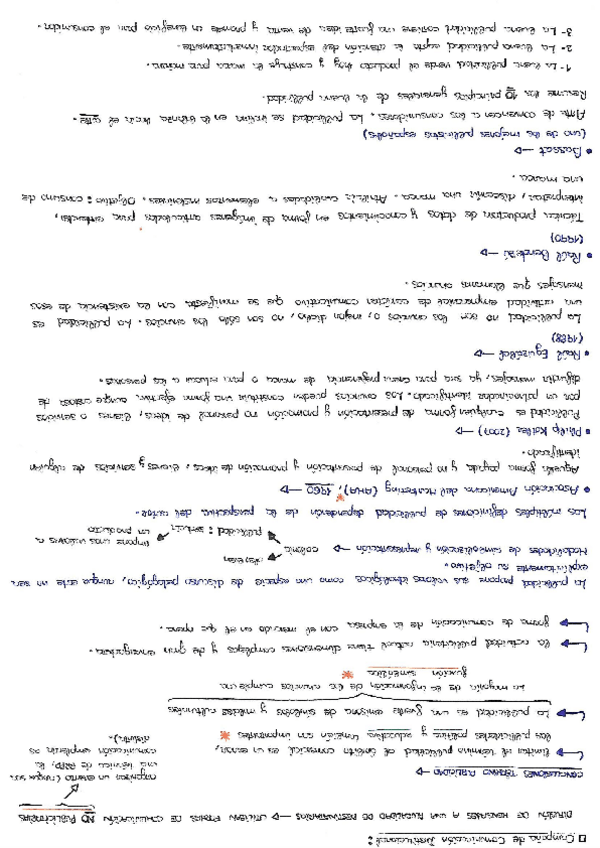 □ Campaña de Comunicación Institucional:
DIFUSIÓN DE MENSAJES A UNA PLURALIDAD DE DESTINATARIOS → UTILIZAN FORMAS DE COMUNICACIÓN NO PUBLICITARIAS
organizan un evento (aunque sea
una técnica de RRPP, la
comunicación empleada es
distinta).
CONCLUSIONES TÉRMINO PUBLICIDAD →
→ limitar el término publicidad al ámbito comercial es un error,
las publicidades política y educativa también son importantes *
→ La publicidad es una fuente enorme de símbolos y modelos culturales
La mayoría de la información de los anuncios cumple una
función simbólica *
→ la actividad publicitaria actual tiene dimensiones complejas y de gran envergadura.
→ forma de comunicación de la empresa con el mercado en el que opera.
La publicidad propone sus valores ideológicos como una especie de discurso pedagógico, aunque este no sea
explícitamente su objetivo.
Modalidades de simbolización y representación → colonia
publicidad: seducir
imponer unos valores a
un producto
Las múltiples definiciones de publicidad dependerán de la perspectiva del autor.
• Asociación Americana del Marketing (AMA), 1960 →
Aquella forma pagada y no personal de presentación y promoción de ideas, bienes y servicios de alguien
identificado.
• Philip Kotler (2007) →
Publicidad es cualquier forma de presentación y promoción no personal de ideas, bienes o servicios
por un patrocinador identificado. Los anuncios pueden constituir una forma efectiva, aunque costosa de
difundir mensajes, ya sea para crear preferencia de marca o para educar a las personas.
• Raúl Eguizábal →
(1988)
La publicidad no son los anuncios o, mejor dicho, no son sólo los anuncios. La publicidad es
una actividad empresarial de carácter comunicativo que se manifiesta con la existencia de esos
mensajes que llamamos anuncios.
• Raúl Bendezú →
(1990)
Técnica productora de datos y conocimientos en forma de imágenes articuladas para entender,
interpretar, discernir una marca. Atribuir cualidades a elementos materiales. Objetivo: consumo de
una marca.
• Bassat →
(uno de los mejores publicistas españoles)
Arte de convencer a los consumidores. La publicidad se
Resume los 10 principios generales de la buena publicidad.
1- La buena publicidad vende el producto hoy y construye la marca para mañana.
2- La buena publicidad capta la atención del espectador inmediatamente.
3- La buena publicidad contiene una fuerte idea de venta y promete un beneficio para el consumidor.